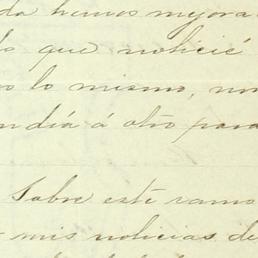 da hemos mejora
lo que noticié
o lo mismo, no
n dia á otro para
Sobre este ramo
mis noticias de